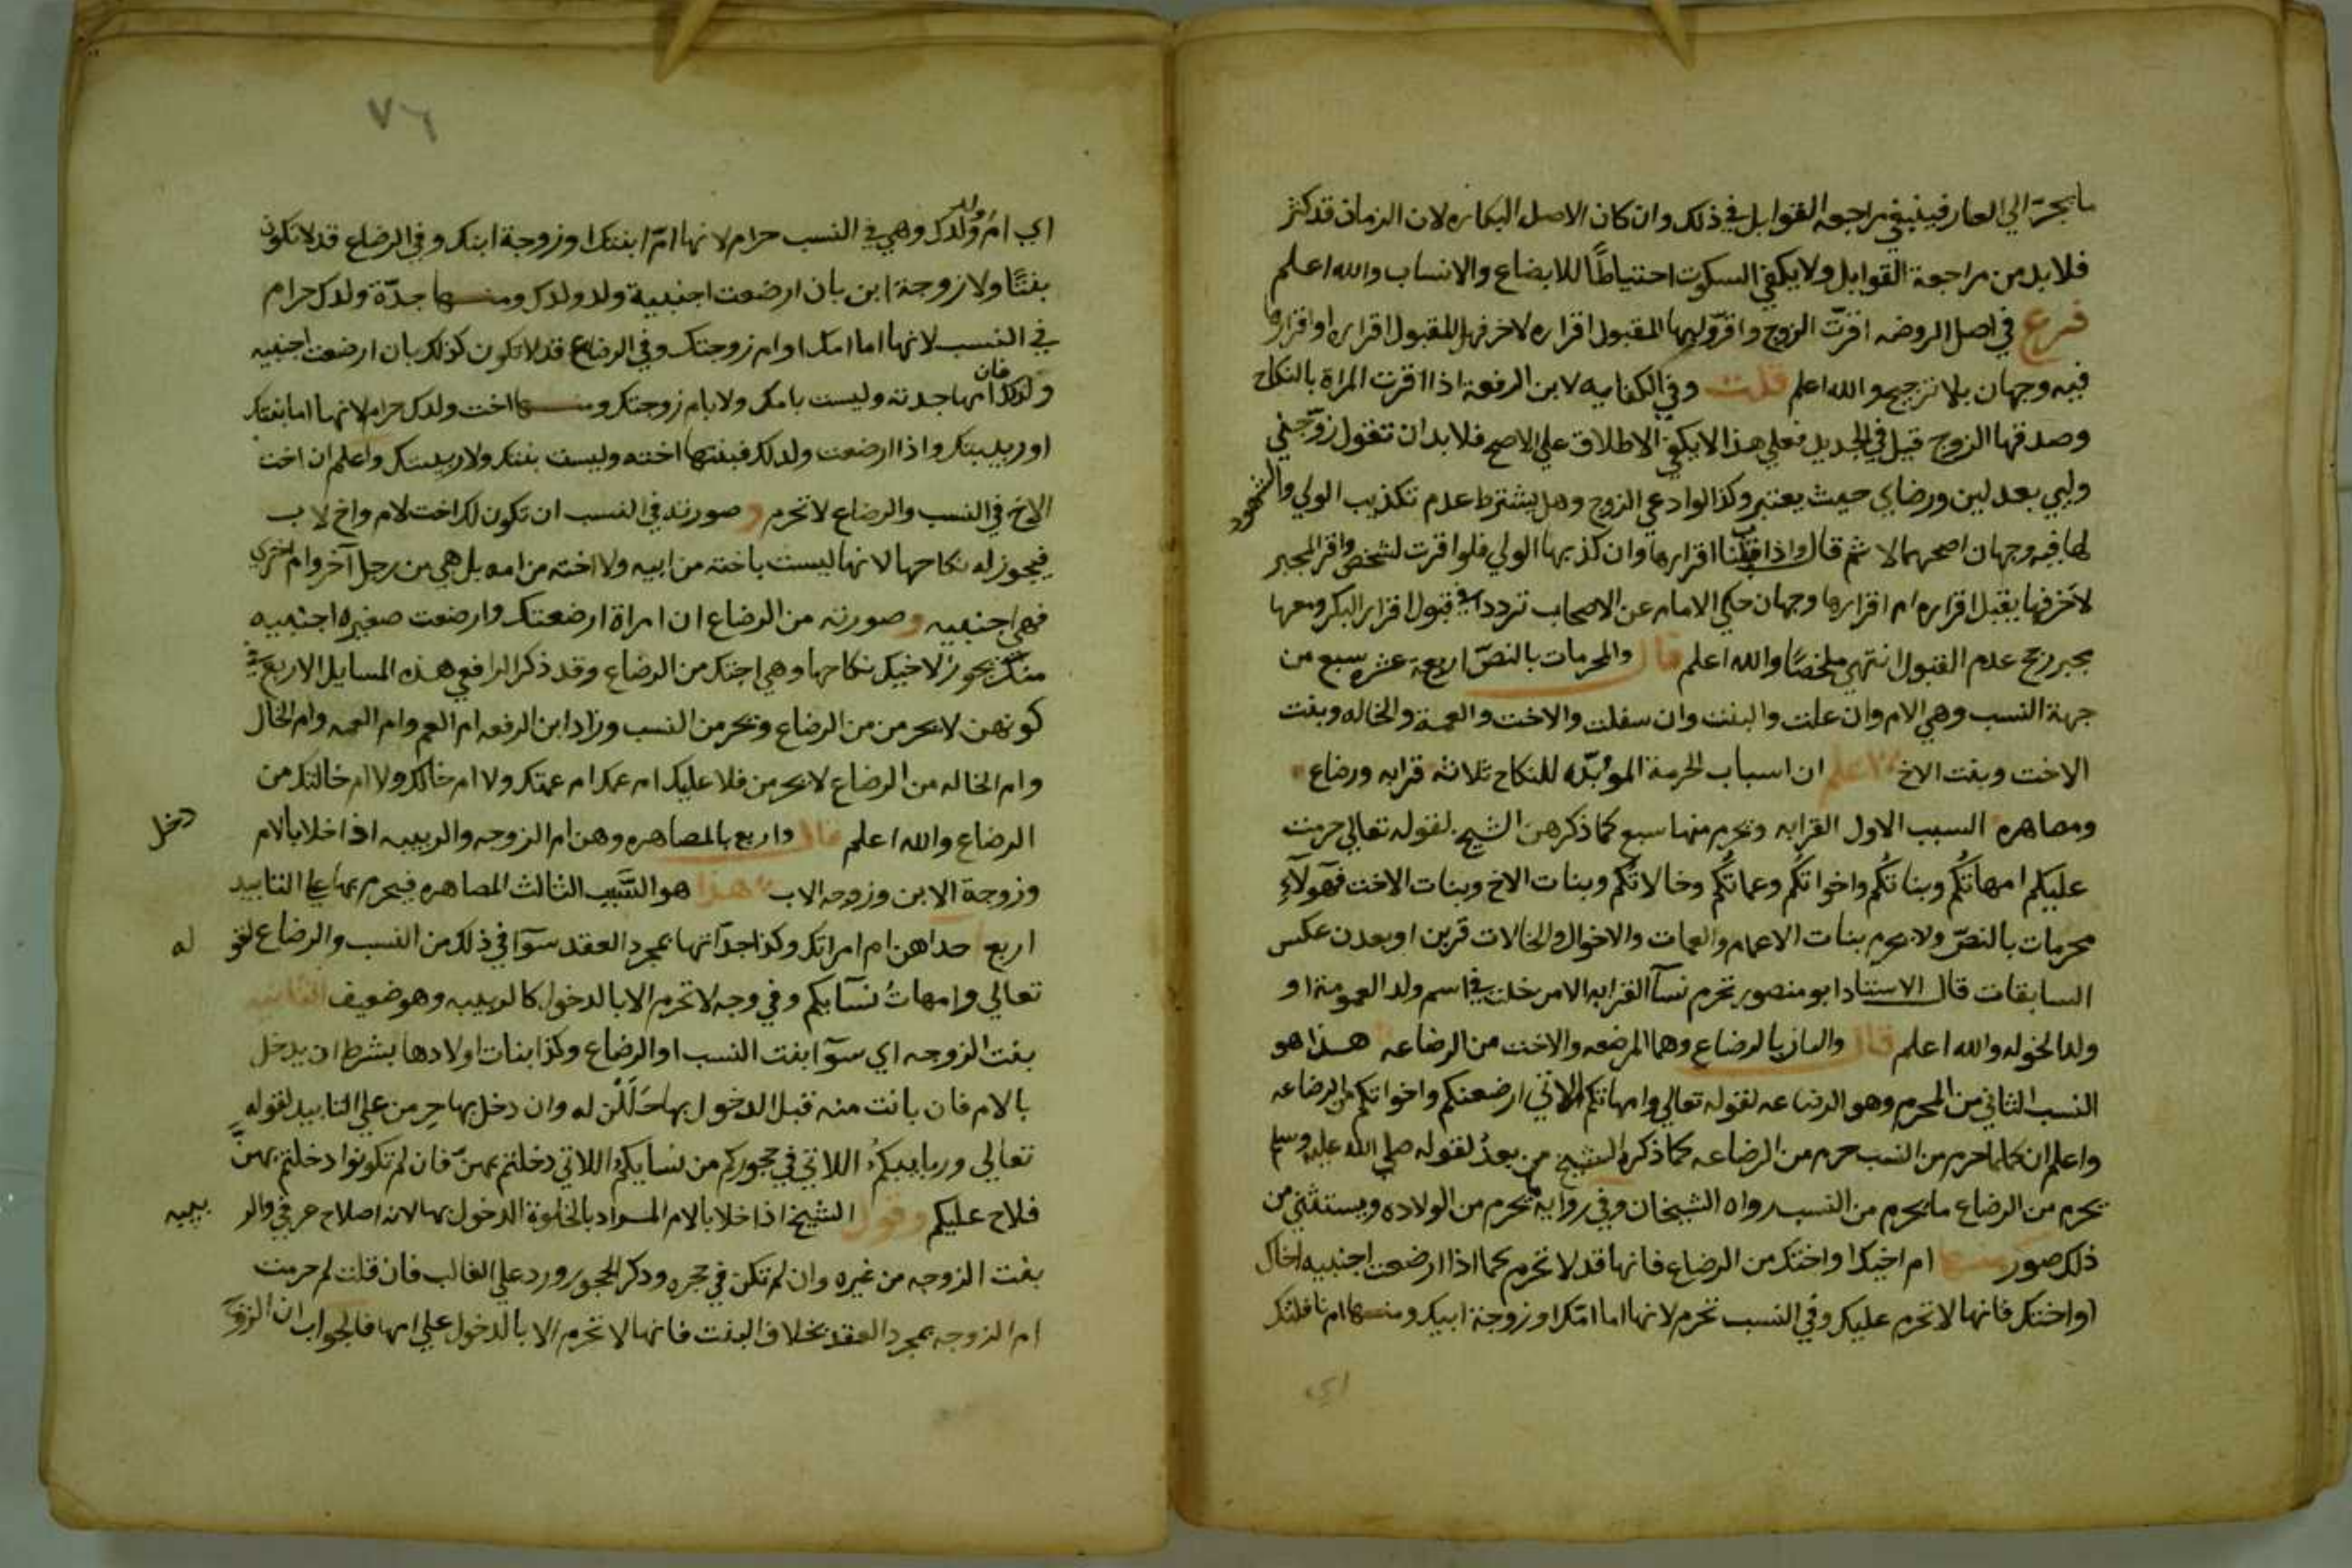 ما يجره الي العار فينبغي مراجعه القوابل في ذلك وان كان الاصل البكاره لان الزمان قد كثر
فلا بد من مراجعة القوابل ولا يكفي السكوت احتياطًا للابضاع والانساب والله اعلم
فرع في اصل الروضه اقرت الزوج واقر وليها المقبول اقراره لاخر فهل المقبول اقراره او اقرارها
فيه وجهان بلا ترجيح والله اعلم قلت وفي الكفايه لابن الرفعة اذا اقرت المراة بالنكاح
وصدقها الزوج قيل في الجديد فعلي هذا لا يكفي الاطلاق علي الاصح فلا بد ان تقول زوجني
وليي بعدلين ورضاي حيث يعتبر وكذا لو ادعي الزوج وهل يشترط عدم تكذيب الولي والشهود
لها فيه وجهان اصحهما لا ثم قال واذا قبلنا اقرارها وان كذبها الولي فلو اقرت لشخص واقر المجبر
لآخر فهل يقبل اقراره ام اقرارها وجهان حكي الامام عن الاصحاب ترددا في قبول اقرار البكر ومعها
مجبر رجح عدم القبول انتهي ملخصًا والله اعلم قال والمحرمات بالنصّ اربعة عشره سبع من
جهة النسب وهي الام وان علت والبنت وان سفلت والاخت والعمة والخاله وبنت
الاخت وبنت الاخ اعلم ان اسباب الحرمة المؤبّده للنكاح ثلاثة قرابه ورضاع
ومصاهره السبب الاول القرابه وتحرم منها سبع كما ذكرهن الشيخ لقوله تعالي حرمت
عليكم امهاتُكُم وبناتُكُم واخواتُكُم وعماتُكُم وخالاتُكُم وبنات الاخ وبنات الاخت فهولآءِ
محرمات بالنصّ ولا يحرم بنات الاعمام والعمات والاخوال والخالات قربن او بعدن عكس
السابقات قال الاستاد ابو منصور تحرم نسآ القرابه الا من دخلت في اسم ولد العمومة او
ولد الخوله والله اعلم قال واثنان بالرضاع وهما المرضعه والاخت من الرضاعه هذا هو
النسب الثاني من المحرم وهو الرضاعه لقوله تعالي وامهاتكم اللاتي ارضعنكم واخواتكم من الرضاعه
واعلم ان كلما حرم من النسب حرم من الرضاعه كما ذكره الشيخ من بعدُ لقوله صلي الله عليه وسلم
يحرم من الرضاع ما يحرم من النسب رواه الشيخان وفي روايه يحرم من الولاده ويستثني من
ذلك صور منها ام اخيك او اختك من الرضاع فانها قد لا تحرم كما اذا ارضعت اجنبيه اخاك
او اختك فانها لا تحرم عليك وفي النسب تحرم لانها اما امّك او زوجة ابيك ومنها ام نافلتك
اي
٧٦
اي ام ولد ولدك وهي في النسب حرام لانها امّ ابنتك او زوجة ابنك وفي الرضاع قد لا تكون
بنتًا ولا زوجة ابن بان ارضعت اجنبية ولد ولدك ومنها جدّة ولدك حرام
في النسب لانها اما امك او ام زوجتك وفي الرضاع قد لا تكون كذلك بان ارضعت اجنبيه
ولدك فان امها جدته وليست بامك ولا بام زوجتك ومنها اخت ولدك حرام لانها اما بنتك
او ربيبتك واذا ارضعت ولدك فبنتها اخته وليست بنتك ولا ربيبتك واعلم ان اخت
الاخ في النسب والرضاع لا تحرم وصورته في النسب ان تكون لك اخت لام واخ لاب
فيجوز له نكاحها لانها ليست باخته من ابيه ولا اخته من امه بل هي من رجل آخر وام اخري
فهي اجنبيه وصورته من الرضاع ان امراة ارضعتك وارضعت صغيره اجنبيه
منك يجوز لاخيك نكاحها وهي اختك من الرضاع وقد ذكر الرافعي هذه المسايل الاربع في
كونهن لا يحرمن من الرضاع ويحرمن النسب وزاد ابن الرفعه ام العم وام العمه وام الخال
وام الخاله من الرضاع لا يحرمن فلا عليك ام عمك ام عمتك ولا ام خالك ولا ام خالتك من
الرضاع والله اعلم قال واربع بالمصاهره وهن ام الزوجه والربيبه اذا خلا بالام دخل
وزوجة الابن وزوجه الاب هذا هو السَّبب الثالث المصاهره فيحرم بها علي التابيد
اربع احداهن ام امراتك وكذا جداتها بمجرد العقد سوآ في ذلك من النسب والرضاع لقو له
تعالي وامهاتُ نسآيكم وفي وجه لا تحرم الا بالدخول كالربيبه وهو ضعيف الثانيه
بنت الزوجه اي سوآ بنت النسب او الرضاع وكذا بنات اولادها بشرط ان يدخل
بالام فان بانت منه قبل الدخول بها حَلَلْن له وان دخل بها حرمن علي التابيد لقوله
تعالي وربايبكمُ اللاتي في حجوركم من نسايكم اللاتي دخلتم بهنّ فان لم تكونوا دخلتم بهنّ
فلاح عليكم وقول الشيخ اذا خلا بالام المراد بالخلوة الدخول بها لانه اصلاح عرفي والر بيبه
بنت الزوجه من غيره وان لم تكن في حجره وذكر الحجور ورد علي الغالب فان قلت لم حرمت
ام الزوجه بمجرد العقد بخلاف البنت فانها لا تحرم الا بالدخول علي امها فالجواب ان الزوج